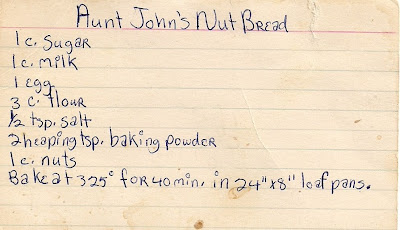 Aunt John's Nut Bread
1 c. sugar
1 c. milk
1 egg
3 c. flour
1/2 tsp. salt
2 heaping tsp. baking powder
1 c. nuts
Bake at 325° for 40 min. in 2 4"x8" loaf pans.